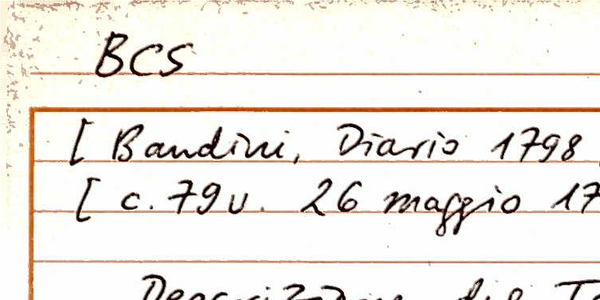 BCS
[ Bandini, Diario 1798,
[ c. 79v. 26 maggio 17